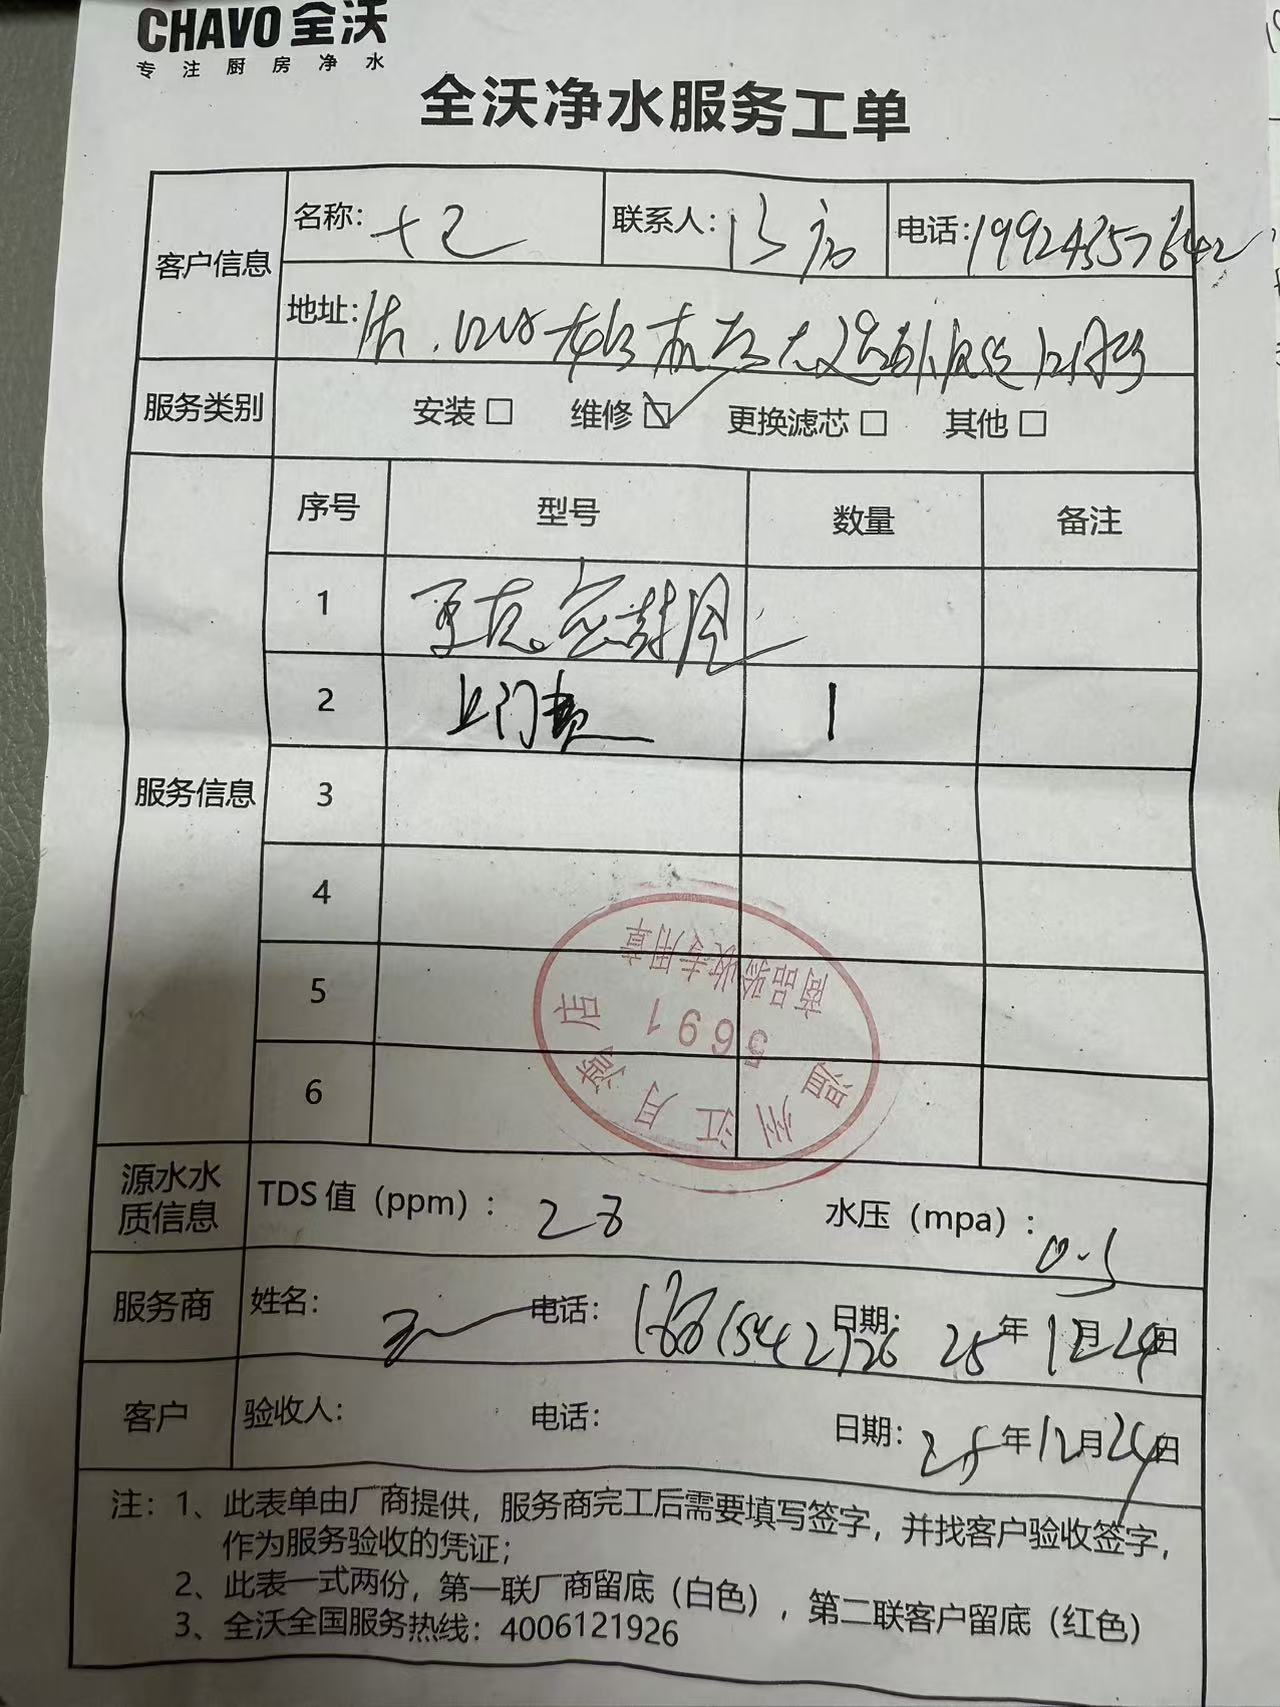 CHAVO 全沃
专注厨房净水
全沃净水服务工单
客户信息
名称: 七已
联系人:
电话:19924357642
地址:
服务类别
安装□ 维修☑ 更换滤芯□ 其他□
服务信息
序号 型号 数量 备注
1 更换密封圈
2 上门费 1
3
4
5
6
温州江月湾店
3691
商品验收专用章
源水水质信息
TDS值（ppm）: 28 水压（mpa）: 0.5
服务商
姓名: 电话: 日期: 25年12月24日
客户
验收人: 电话: 日期: 25年12月24日
注：1、此表单由厂商提供，服务商完工后需要填写签字，并找客户验收签字，
作为服务验收的凭证；
2、此表一式两份，第一联厂商留底（白色），第二联客户留底（红色）
3、全沃全国服务热线：4006121926